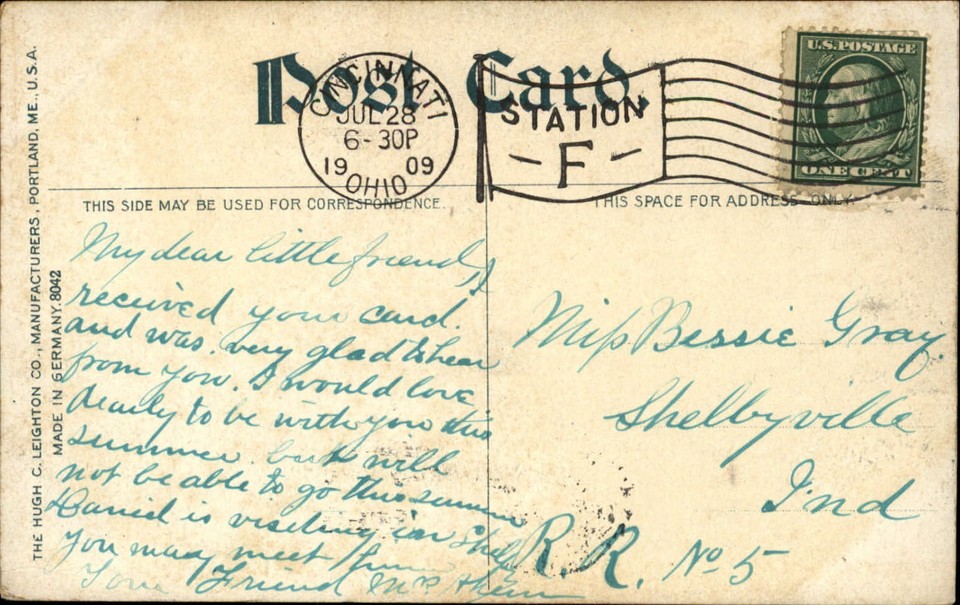 Post Card.
CINCINNATI
JUL 28
6-30P
19 09
OHIO
STATION
- F -
U.S. POSTAGE
ONE CENT
THIS SIDE MAY BE USED FOR CORRESPONDENCE.
THIS SPACE FOR ADDRESS ONLY.
THE HUGH C. LEIGHTON CO., MANUFACTURERS, PORTLAND, ME., U.S.A.
MADE IN GERMANY. 8042
My dear little friend, I
received your card.
and was very glad to hear
from you. I would love
dearly to be with you this
summer but will
not be able to go this summer
is visiting in Shelby
you may meet
Your Friend Mrs
Miss Bessie Gray.
Shelbyville
Ind
R.R. No 5